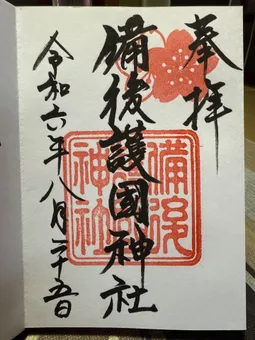 奉拝
備後護國神社
令和六年八月二十五日
備後
護國
神社